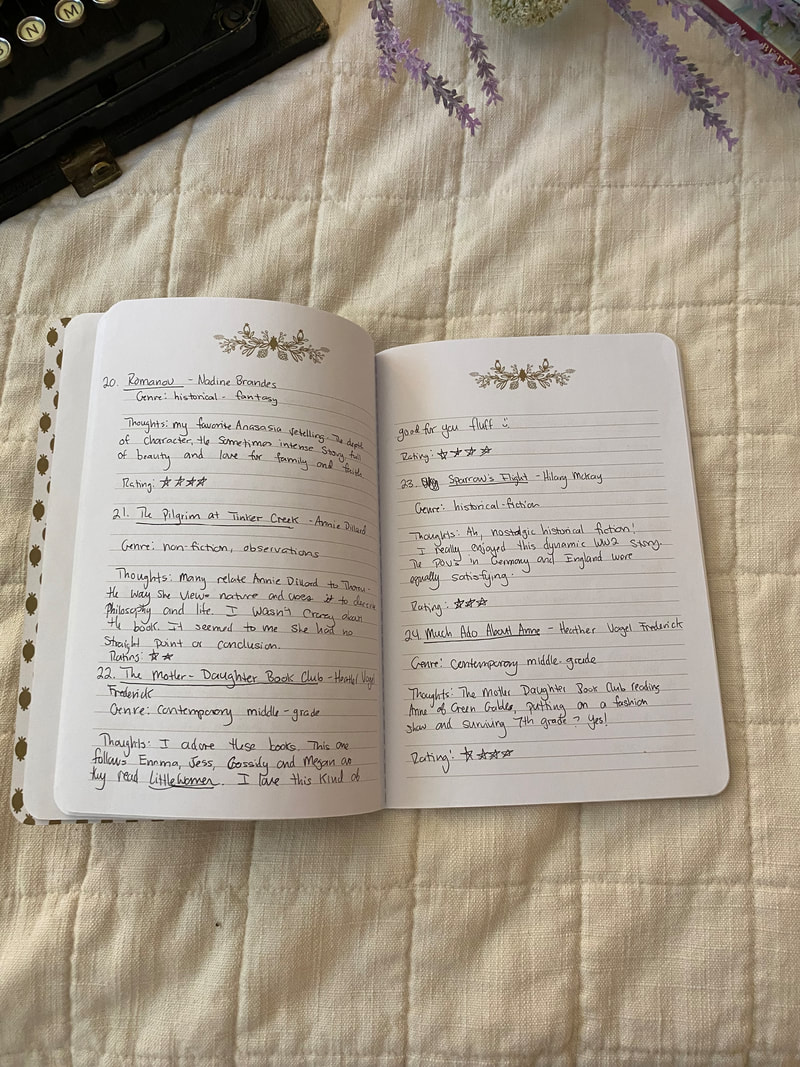 N M
20. Romanov - Nadine Brandes
Genre: historical - fantasy
Thoughts: my favorite Anasasia retelling. The depth
of character, the sometimes intense story full
of beauty and love for family and faith.
Rating: ☆☆☆☆
21. The Pilgrim at Tinker Creek - Annie Dillard
Genre: non-fiction, observations
Thoughts: Many relate Annie Dillard to
the way she views nature and uses it to
philosophy and life. I wasn't crazy about
the book. It seemed to me she had no
straight point or conclusion.
Rating: ☆☆
22. The Mother-Daughter Book Club - Heather Vogel
Frederick
Genre: contemporary middle-grade
Thoughts: I adore these books. This one
follows Emma, Jess, Cassidy and Megan as
they read Little Women. I love this kind of
good for you fluff :)
Rating: ☆☆☆☆
23. Sparrow's Flight - Hilary McKay
Genre: historical-fiction
Thoughts: Ah, nostalgic historical fiction!
I really enjoyed this dynamic WW2 story.
The POVs in Germany and England were
equally satisfying.
Rating: ☆☆☆
24. Much Ado About Anne - Heather Vogel Frederick
Genre: Contemporary middle-grade
Thoughts: The Mother Daughter Book Club reading
Anne of Green Gables, putting on a fashion
show and surviving 7th grade? Yes!
Rating: ☆☆☆☆